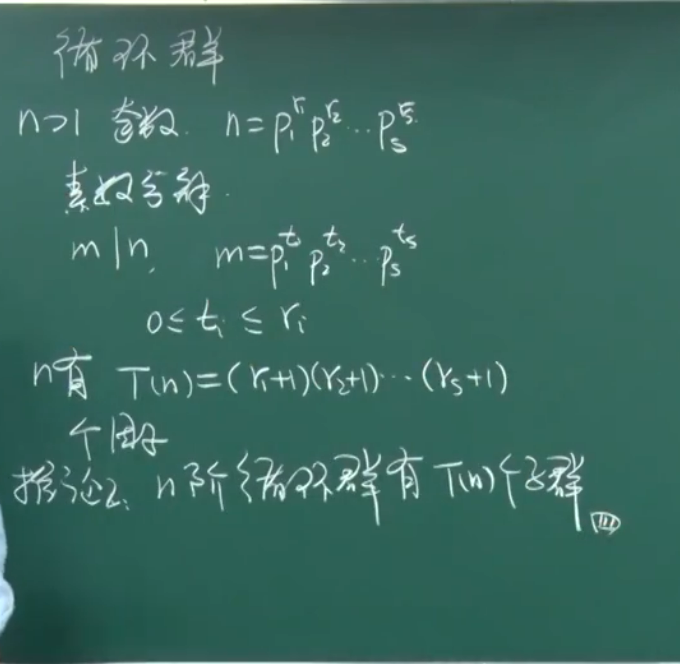 循环群
n>1 整数. n=p₁^{r₁}p₂^{r₂}…pₛ^{rₛ}.
素数分解.
m|n, m=p₁^{t₁}p₂^{t₂}…pₛ^{tₛ}
0≤tᵢ≤rᵢ
n有 T(n)=(r₁+1)(r₂+1)…(rₛ+1)
个因子
推论2: n阶循环群有T(n)个子群